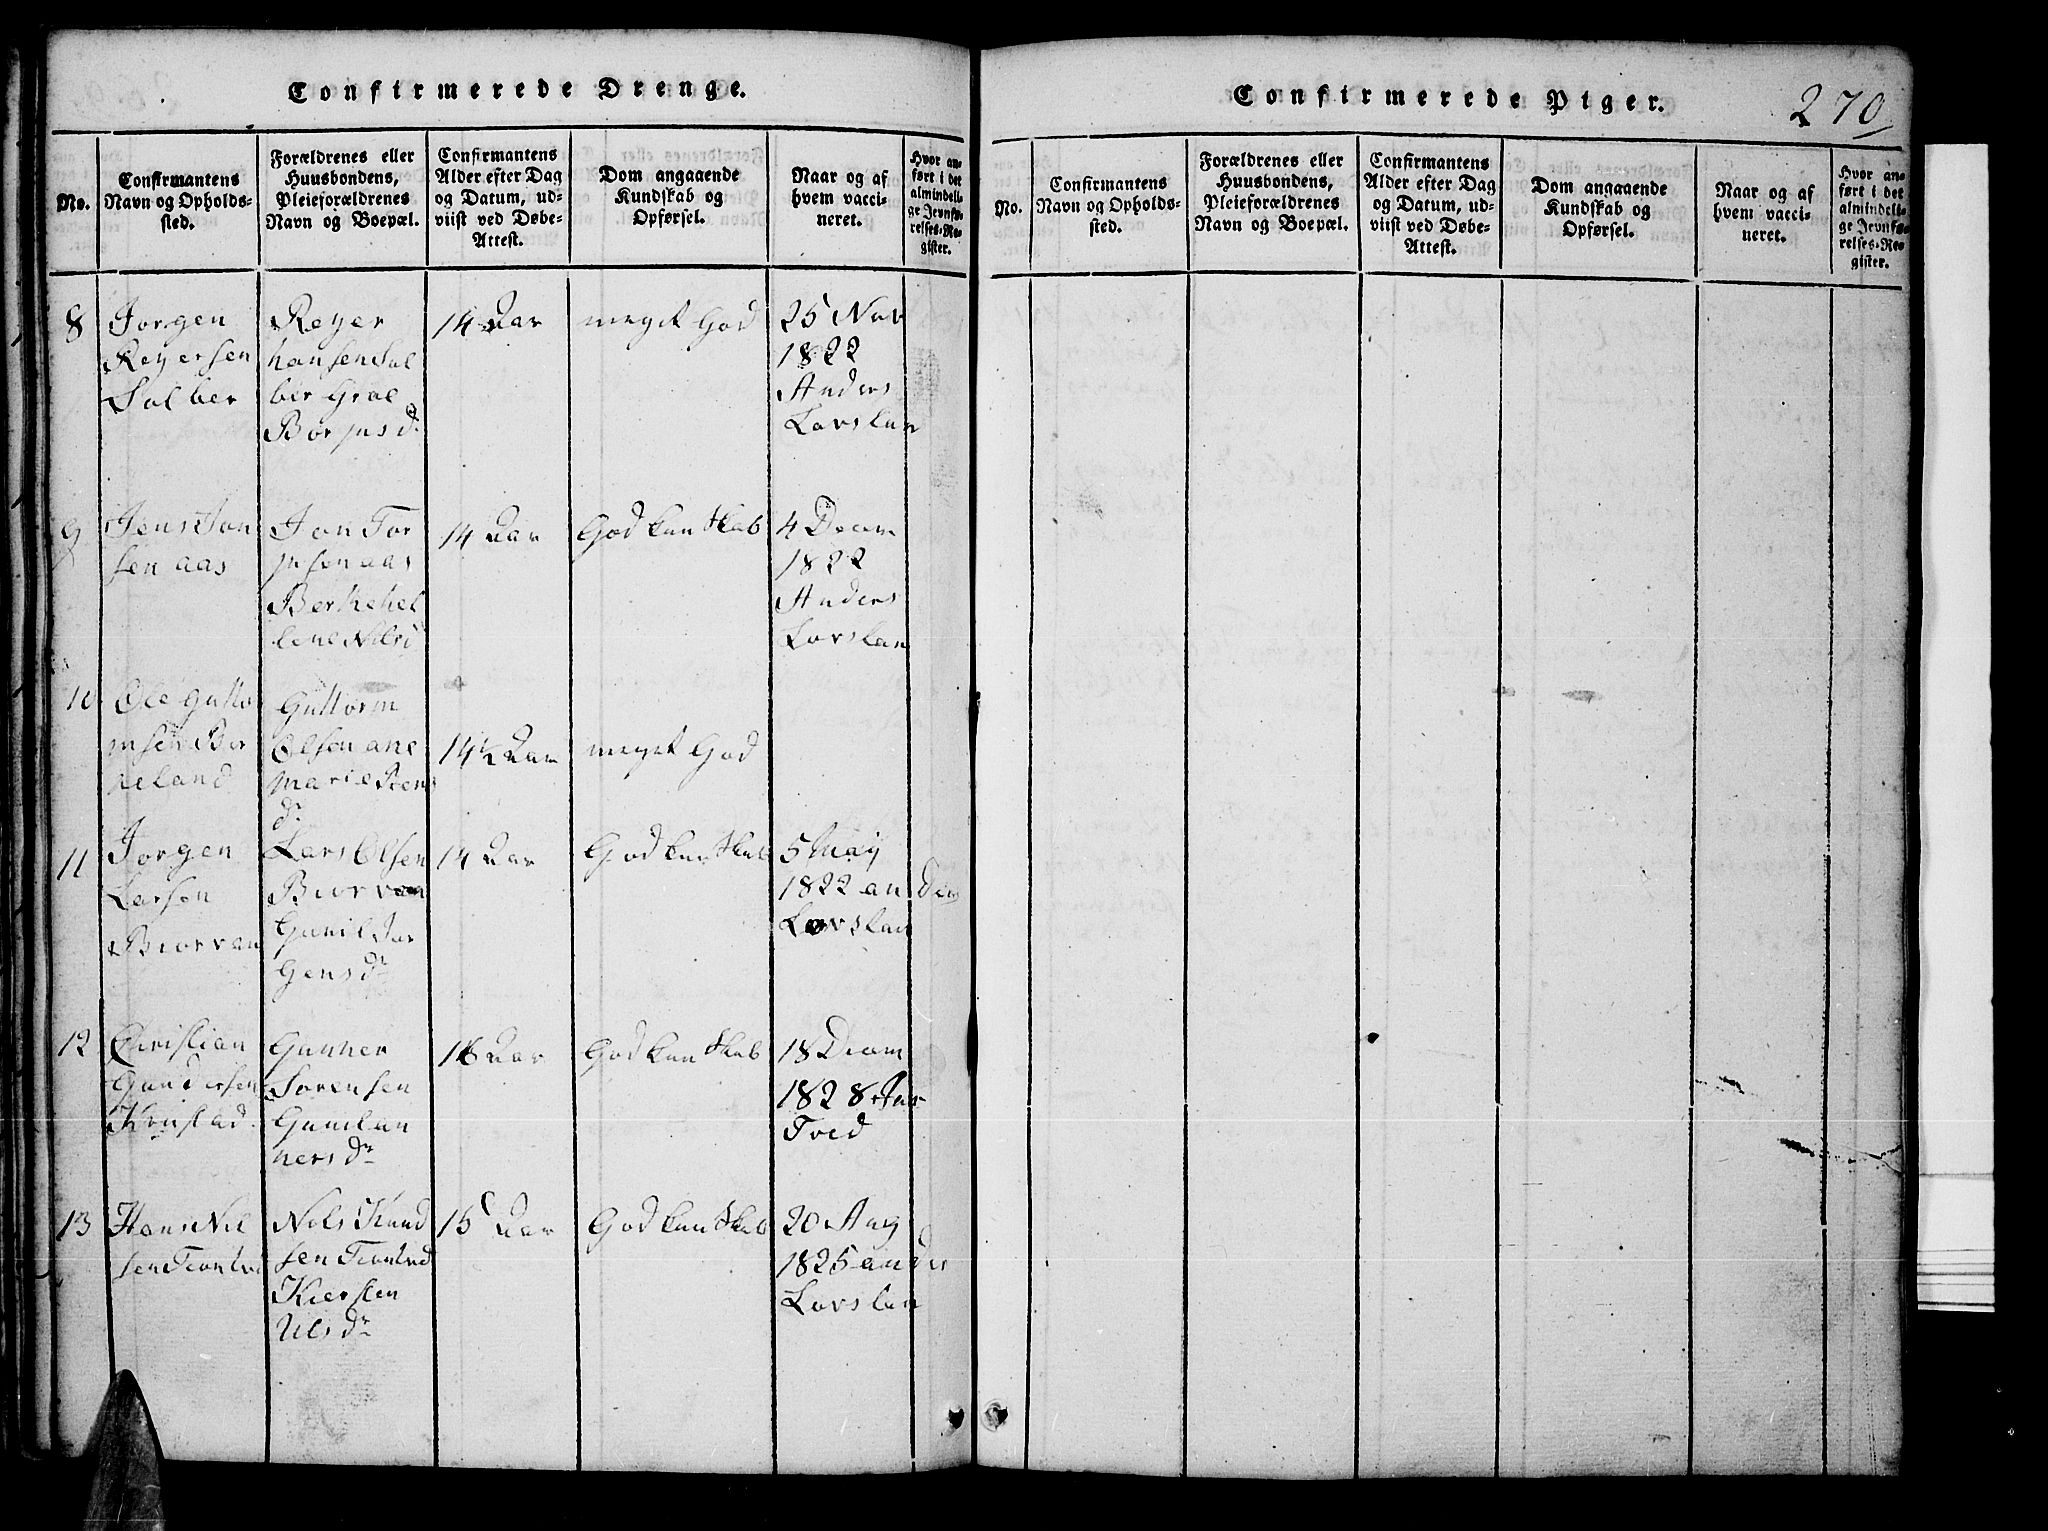 Confirmerede Drenge.
No.
Confirmantens
Navn og Opholds-
sted.
Forældrenes eller
Huusbondens,
Pleieforældrenes
Navn og Boepæl.
Confirmantens
Alder efter Dag
og Datum, ud-
viist ved Døbe-
Attest.
Dom angaaende
Kundskab og
Opførsel.
Naar og af
hvem vacci-
neret.
Hvor an-
ført i det
almindeli-
ge Jevnfø-
relses-Re-
gister.
8
Jorgen
Reyersen
Solber
Reyer
hansen Sol
ber
14 Aar
meget God
25 Nov
1822
Anders
Lovslan
9
Jens Jon
sen aas
Jon Tor
jusen aas
lene Nilsd
14 Aar
God kunskab
4 Decm
1822
Anders
Lovslan
10
Ole Gutto
msen
neland
Guttorm
Olsen ane
marie
dr
14½ Aar
meget God
11
Jorgen
Larsen
Biorvan
Lars Olsen
Biorvan
Gunil Jor
Gensdr
14 Aar
God kunskab
5 May
1822 an Der
Lovslan
12
Christian
Gundersen
Gunner
Sorensen
nersdr
16 Aar
God kunskab
18 Decm
1828
Tved
13
Hans Nil
sen
Nils Knud
sen
Kiersten
Nilsdr
15 Aar
God kunskab
20 Aug
1825 an De
Lovslan
Confirmerede Piger.
270
No.
Confirmantens
Navn og Opholds-
sted.
Forældrenes eller
Huusbondens,
Pleieforældrenes
Navn og Boepæl.
Confirmantens
Alder efter Dag
og Datum, ud-
viist ved Døbe-
Attest.
Dom angaaende
Kundskab og
Opførsel.
Naar og af
hvem vacci-
neret.
Hvor an-
ført i det
almindeli-
ge Jevnfø-
relses-Re-
gister.